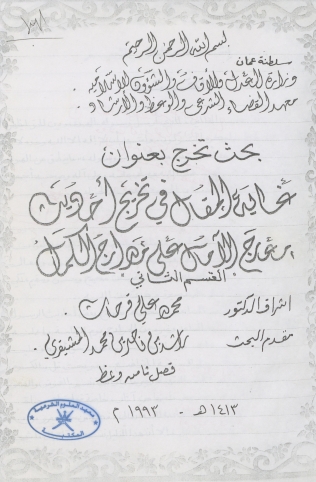 بسم الله الرحمن الرحيم
سلطنة عمان
وزارة العدل والأوقاف والشؤون الإسلامية
معهد القضاء الشرعي والوعظ والإرشاد
بحث تخرج بعنوان
غاية المقال في تخريج أحاديث
معارج الآمال على مدارج الكمال
القسم الثاني
اشراف الدكتور محمد علي فرحات.
مقدم البحث راشد بن ناصر بن محمد المشيفري.
فصل ثامن وعظ
١٤١٣هـ - ١٩٩٣م
معهد العلوم الشرعية
المكتبة